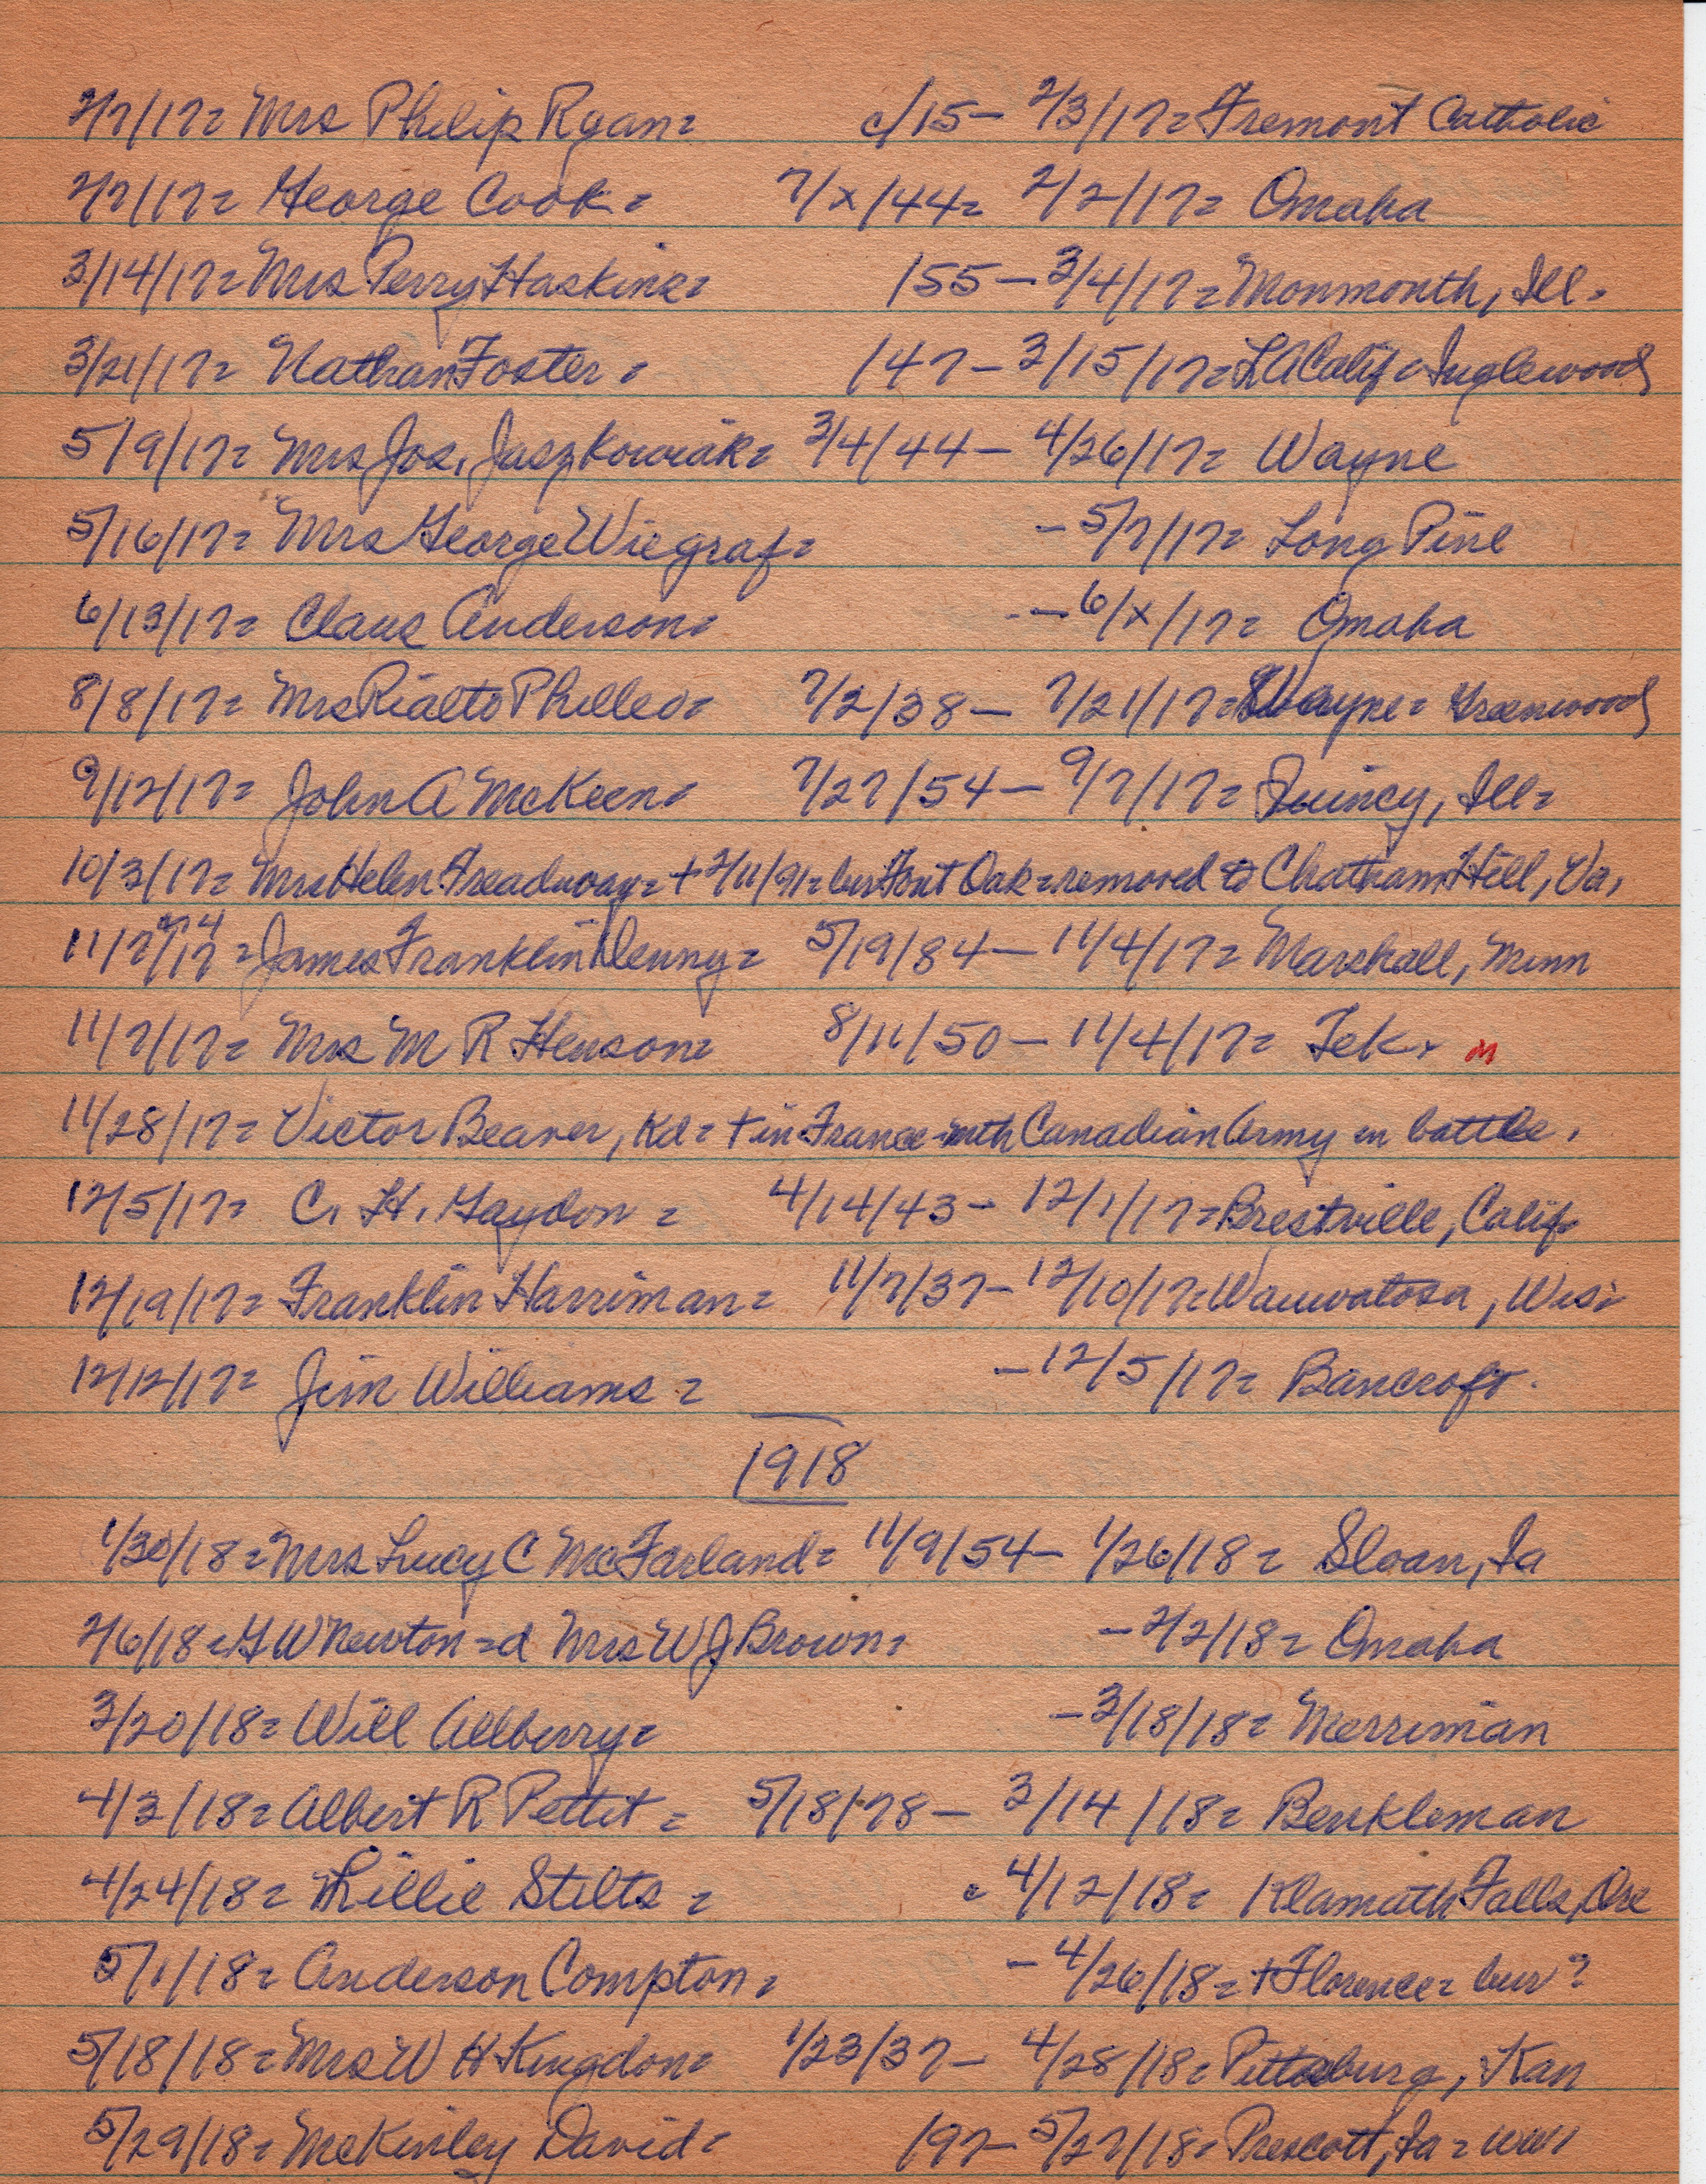 2/7/17= Mrs Philip Ryan= c/15- 2/3/17= Fremont Catholic
2/7/17= George Cook= 7/x/44= 2/2/17= Omaha
3/14/17= Mrs Perry Haskins= /55- 3/4/17= Monmonth, Ill=
3/21/17= Nathan Foster= /47- 3/15/17= LA Calif= Inglewood
5/9/17= Mrs Jos. Jaszkowiak= 3/4/44- 4/26/17= Wayne
5/16/17= Mrs George Wiegraf= -5/7/17= Long Pine
6/13/17= Claus Anderson= -6/x/17= Omaha
8/8/17= Mrs Rialto Philleo= 7/2/38- 7/21/17= Wayne= Greenwood
9/12/17= John A McKeen= 7/27/54- 9/7/17= Quincy, Ill=
10/3/17= Mrs Helen Treadway= + 2/11/91= bur Font Oak= removed to Chatham Hill, Va.
11/7/17= James Franklin Denny= 5/19/84- 11/4/17= Marshall, Minn
11/7/17= Mrs M R Henson= 8/11/50- 11/4/17= Tek. M
11/28/17= Victor Beaver, Kd= + in France with Canadian Army in battle.
12/5/17= C. H. Gaydon= 4/14/43- 12/1/17= Brestville, Calif
12/19/17= Franklin Harriman= 11/7/37- 12/10/17= Wauwatosa, Wis=
12/12/17= Jim Williams= -12/5/17= Bancroft.
1918
1/30/18= Mrs Lucy C McFarland= 11/9/54- 1/26/18= Sloan, Ia
2/6/18= G W Newton=d Mrs W J Brown= -2/2/18= Omaha
3/20/18= Will Allberry= -3/18/18= Merriman
4/3/18= Albert R Pettit= 5/18/78- 3/14/18= Benkleman
4/24/18= Lillie Stilts= 4/12/18= Klamath Falls, Ore
5/1/18= Anderson Compton= -4/26/18= + Florence= bur?
5/18/18= Mrs W H Kingdon= 1/23/37- 4/28/18= Pittsburg, Kan
5/29/18= McKinley David= /97- 5/27/18= Prescott, Ia= WWI